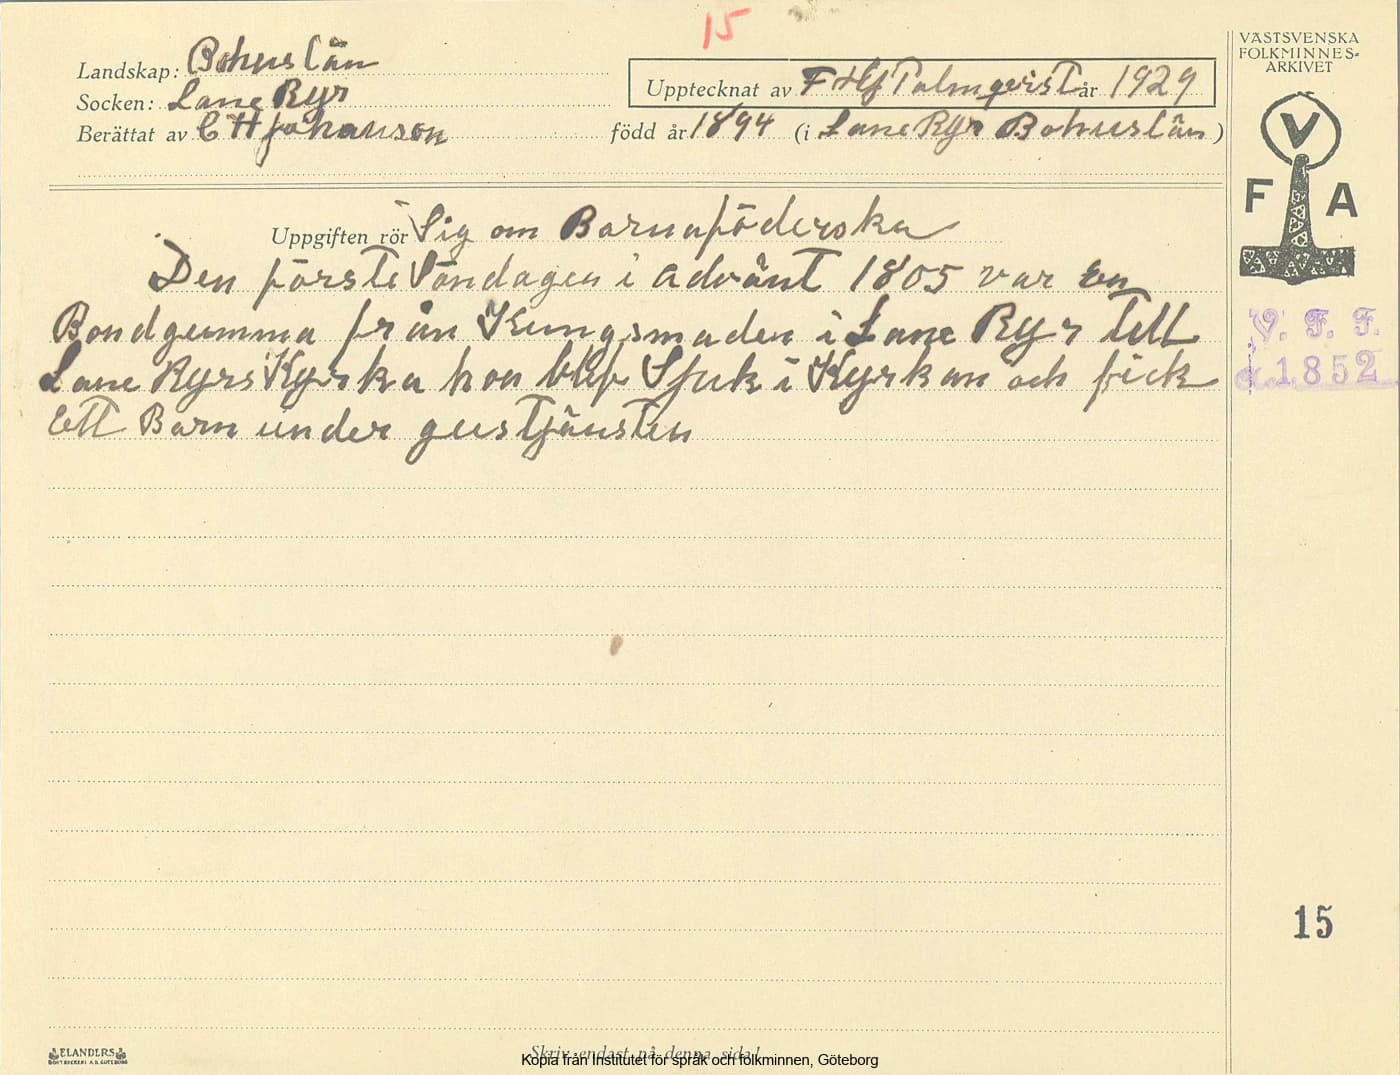 15
VÄSTSVENSKA
FOLKMINNES-
ARKIVET
Landskap: Bohuslän
Socken: Lane Ryr
Upptecknat av F Hj Palmqvist år 1929
Berättat av C H Johanson född år 1894 (i Lane Ryr Bohuslän)
V
F A
Uppgiften rör Sig om Barnaföderska
Den förste Söndagen i advänt 1805 var en
Bondgumma från Kungsmaden i Lane Ryr Till
Lane Ryrs Kyrka hon blef Sjuk i Kyrkan och fick
Ett Barn under gustjänsten
V. F. F.
1852
15
ELANDERS
BOKTRYCKERI A.B. GÖTEBORG
Skriv endast på denna sida!
Kopia från Institutet för språk och folkminnen, Göteborg